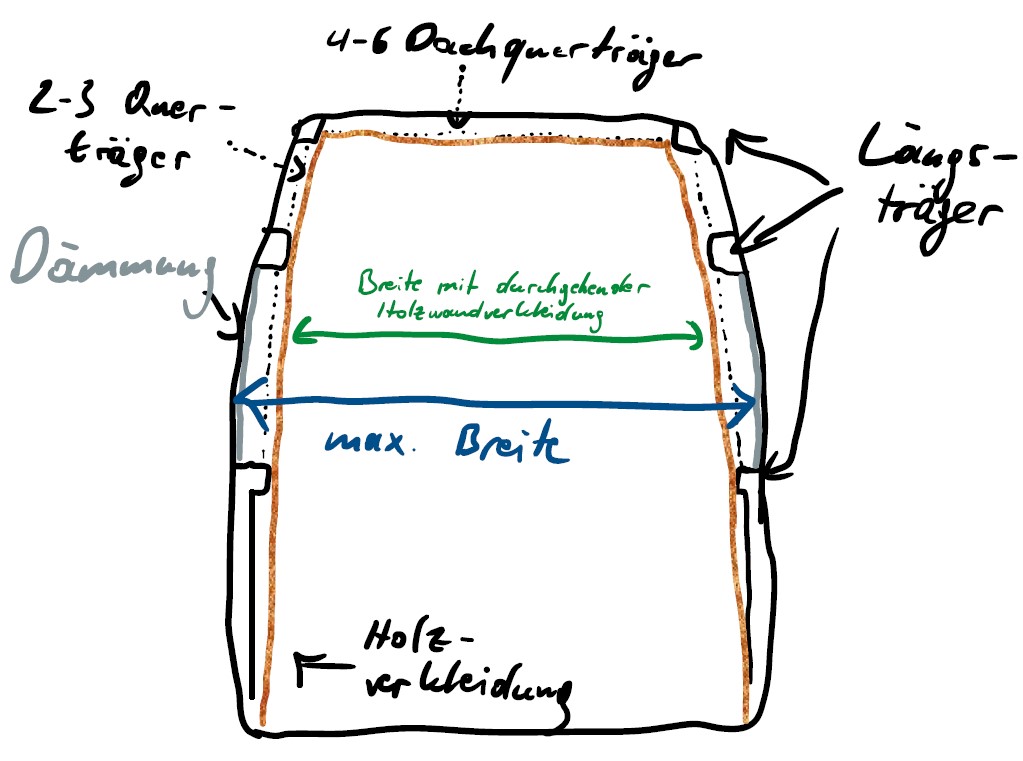 4-6 Dachquerträger
2-3 Quer-
träger
Längs-
träger
Dämmung
Breite mit durchgehender
Holzwandverkleidung
max. Breite
Holz-
verkleidung